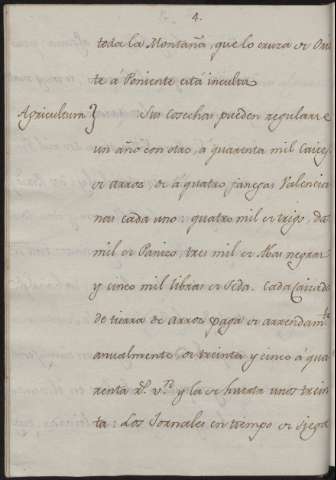 4.
toda la Montaña, que lo cruza de Orien
te á Poniente está inculta
Agricultura} Sus cosechas pueden regularse
un año con otro, á quarenta mil Caices
de arroz de á quatro fanegas Valencia
nas cada uno: quatro mil de trigo, dos
mil de Panizo, tres mil de Abas negras
y cinco mil libras de Seda. Cada Caizada
de tierra de arroz paga de arrendam.to
anualmente de treinta y cinco á qua
renta r.s v.n y la de huerta unos trein
ta: Los Jornales en tiempo de siega